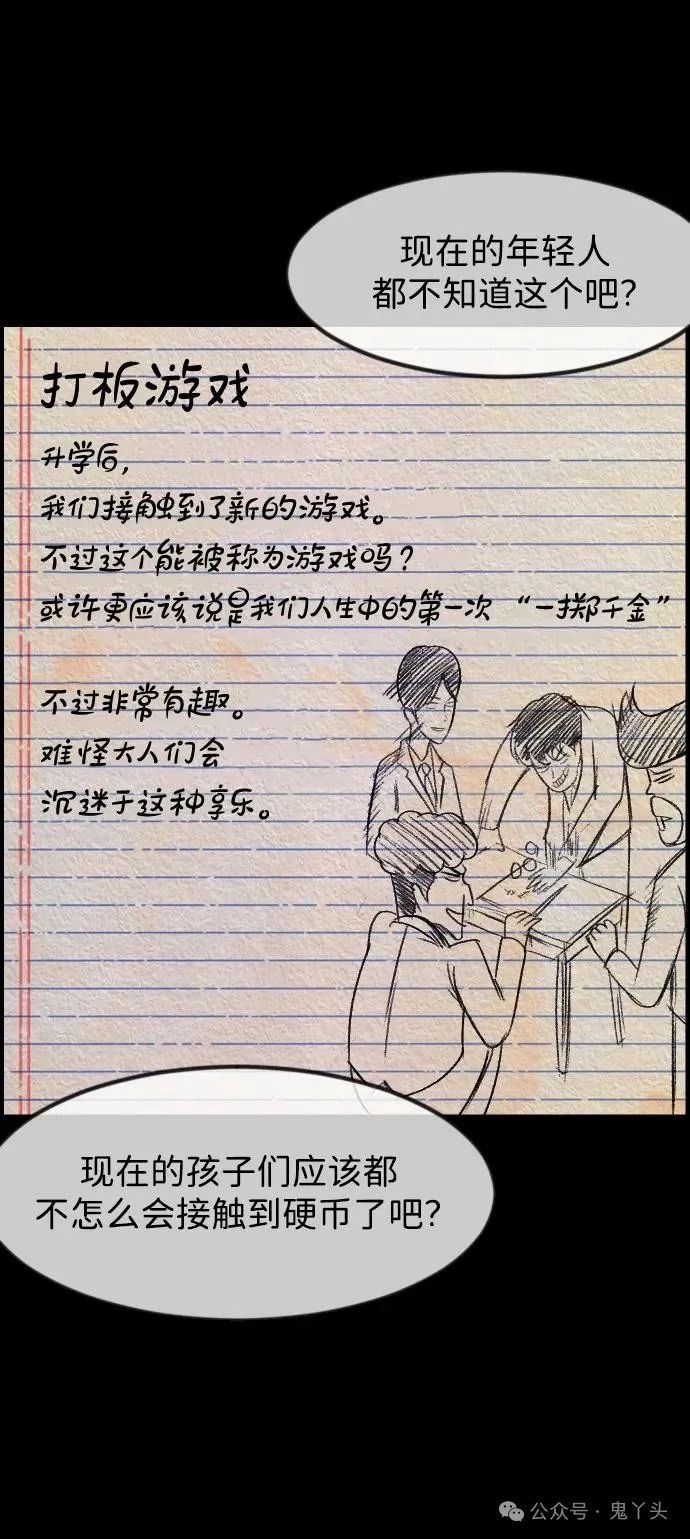 现在的年轻人
都不知道这个吧？
打板游戏
升学后，
我们接触到了新的游戏。
不过这个能被称为游戏吗？
或许更应该说是我们人生中的第一次“一掷千金”
不过非常有趣。
难怪大人们会
沉迷于这种享乐。
现在的孩子们应该都
不怎么会接触到硬币了吧？
公众号·鬼丫头